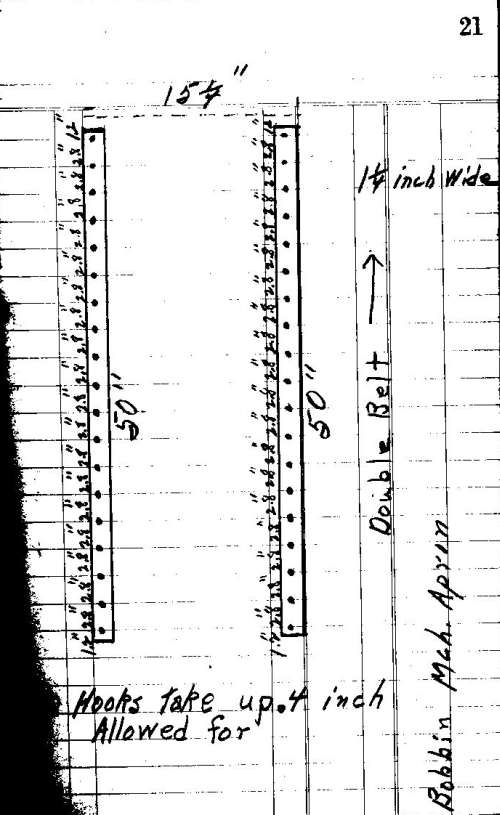 21
15 1/4"
1.2" 2.8" 2.8" 2.8" 2.8" 2.8" 2.8" 2.8" 2.8" 2.8" 2.8" 2.8" 2.8" 2.8" 2.8" 2.8" 2.8" 2.8" 2.8" 1.2"
50"
1.2" 2.8" 2.8" 2.8" 2.8" 2.8" 2.8" 2.8" 2.8" 2.8" 2.8" 2.8" 2.8" 2.8" 2.8" 2.8" 2.8" 2.8" 2.8" 1.2"
50"
1 1/4 inch Wide
Double Belt →
Bobbin Mch. Apron
Hooks take up .4 inch
Allowed for